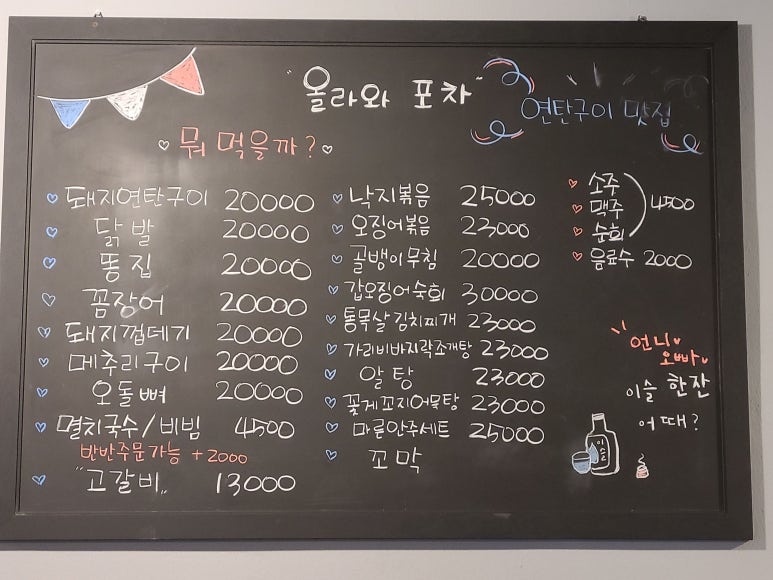 "올라와 포차"
연탄구이 맛집
뭐 먹을까?
돼지연탄구이 20000
닭발 20000
똥집 20000
꼼장어 20000
돼지껍데기 20000
메추리구이 20000
오돌뼈 20000
멸치국수/비빔 4500
반반주문가능 +2000
"고갈비" 13000
낙지볶음 25000
오징어볶음 23000
골뱅이무침 20000
갑오징어숙회 30000
통목살김치찌개 23000
가리비바지락조개탕 23000
알탕 23000
꽃게꼬지어묵탕 23000
마른안주세트 25000
꼬막
소주
맥주 4500
순희
음료수 2000
언니
오빠
이슬 한잔
어때?
이슬